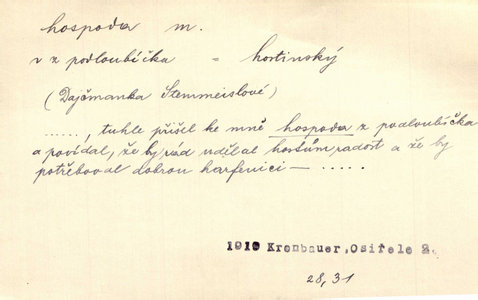 hospoda m.
v z podloubíčka = hostinský
(Dajčmanka Stemmeislové)
......, tuhle přišel ke mně hospoda z podloubíčka
a povídal, že by rád udělal hostům radost a že by
potřeboval dobrou harfenici — ......
1910 Kronbauer, Osiřele 2.
28, 31